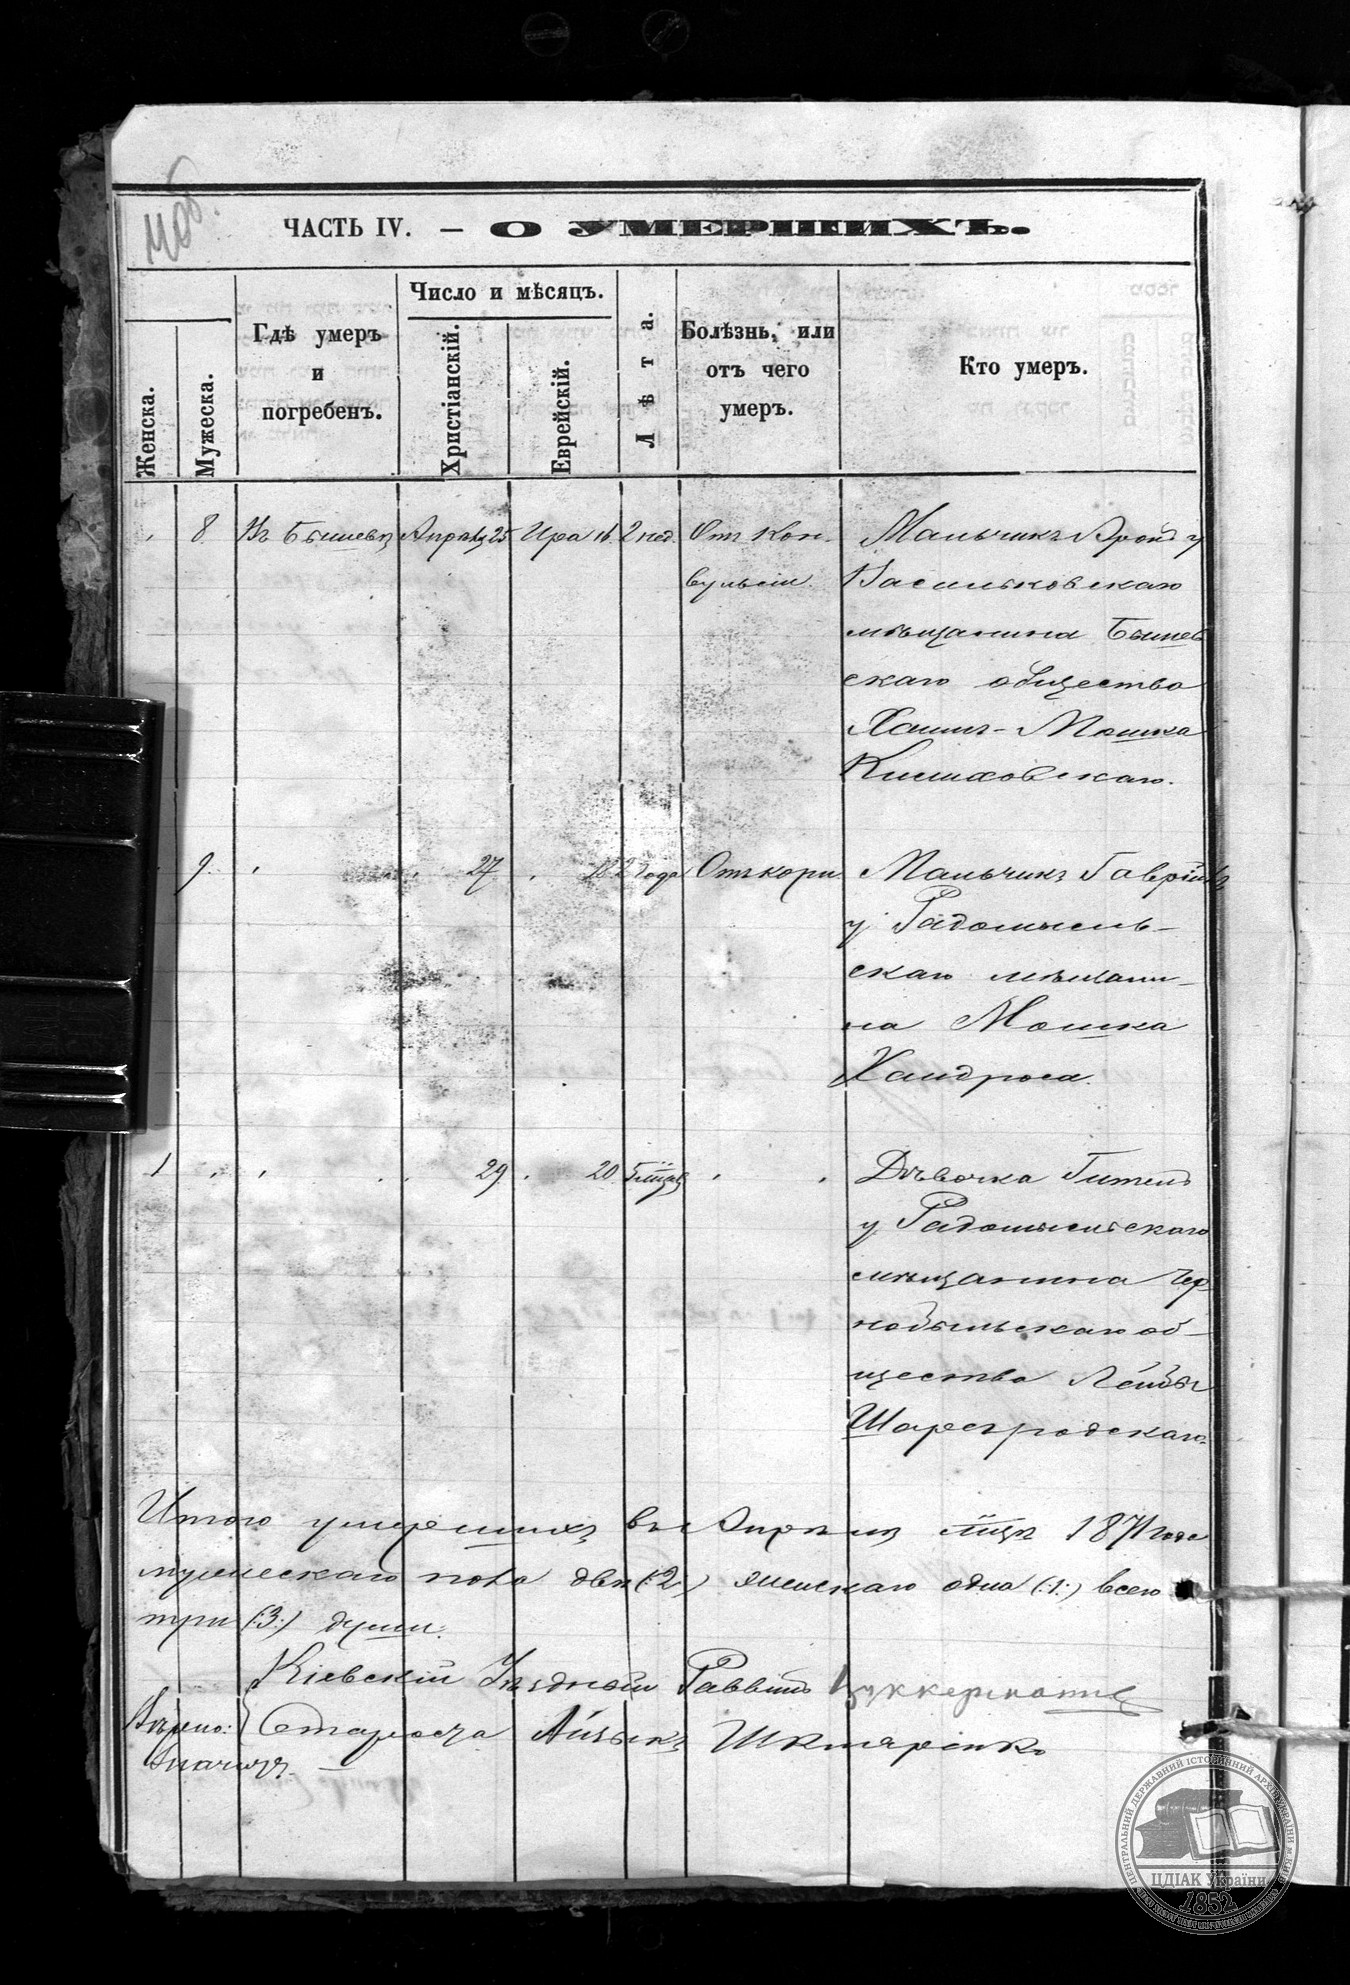 ЧАСТЬ IV. — О УМЕРШИХЪ.
Женска.
Мужеска.
Гдѣ умеръ
и
погребенъ.
Число и мѣсяцъ.
Христіанскій.
Еврейскій.
Лѣта.
Болѣзнь, или
отъ чего
умеръ.
Кто умеръ.
8. Въ Бышевѣ Апрѣля 25 Ира 16 2 нед. Отъ кон- Мальчикъ Аронъ у
вульсіи. Васильковскаго
мѣщанина Бышев
скаго общества
Хаимъ-Мошка
9. 27 18 2 года Отъ кори Мальчикъ Гаврiилъ
у Радомысль-
скаго мѣщани-
на Мошка
Хандроса.
1 29 20 Дѣвочка Гитель
у Радомысльского
мѣщанина Чер
нобыльскаго об-
щества Лейбы
Шаргородскаго.
Итого умершихъ въ Апрѣлѣ м͠цѣ 1871 года
мужескаго пола два (:2:) женскаго одна (:1:) всего
три (:3:) души.
Кіевскій Уѣздный Раввинъ Цуккерманъ
Вѣрно: Староста Айзыкъ
ЦЕНТРАЛЬНИЙ ДЕРЖАВНИЙ ІСТОРИЧНИЙ АРХІВ УКРАЇНИ м. КИЇВ
ЦДІАК України
1852